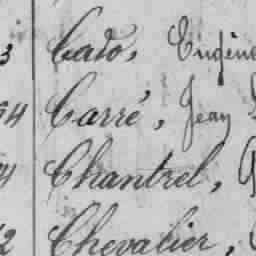 3 Cado, Eugène
54 Carré, Jean
Chantrel,
2 Chevalier,